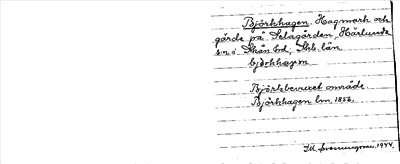 Björkhagen. Hagmark och
gärde på Selagården, Härlunda
sn i Skån hd, Skb. län
bjɔrkhagen
Björkbevuxet område.
Björkhagen lm. 1856.
1944.